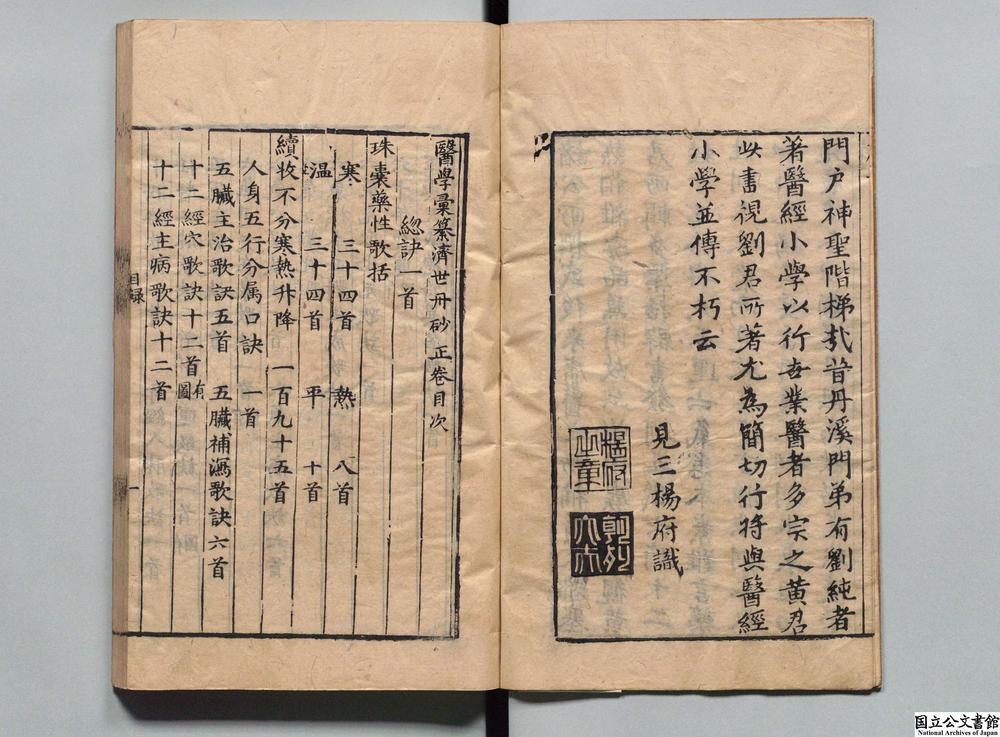 門戶神聖階梯哉昔丹溪門弟有劉純者
著醫經小學以行世業醫者多宗之黃君
此書視劉君所著尤為簡切行將與醫經
小學並傳不朽云
見三楊府識
楊府
之章
醫學彙纂濟世丹砂正卷目次
總訣一首
珠囊藥性歌括
寒 三十四首 熱 八首
温 三十四首 平 十首
續收不分寒熱升降 一百九十五首
人身五行分属口訣 一首
五臟主治歌訣五首 五臟補瀉歌訣六首
十二經穴歌訣十二首有圖
十二經主病歌訣十二首
目録
一
国立公文書館
National Archives of Japan